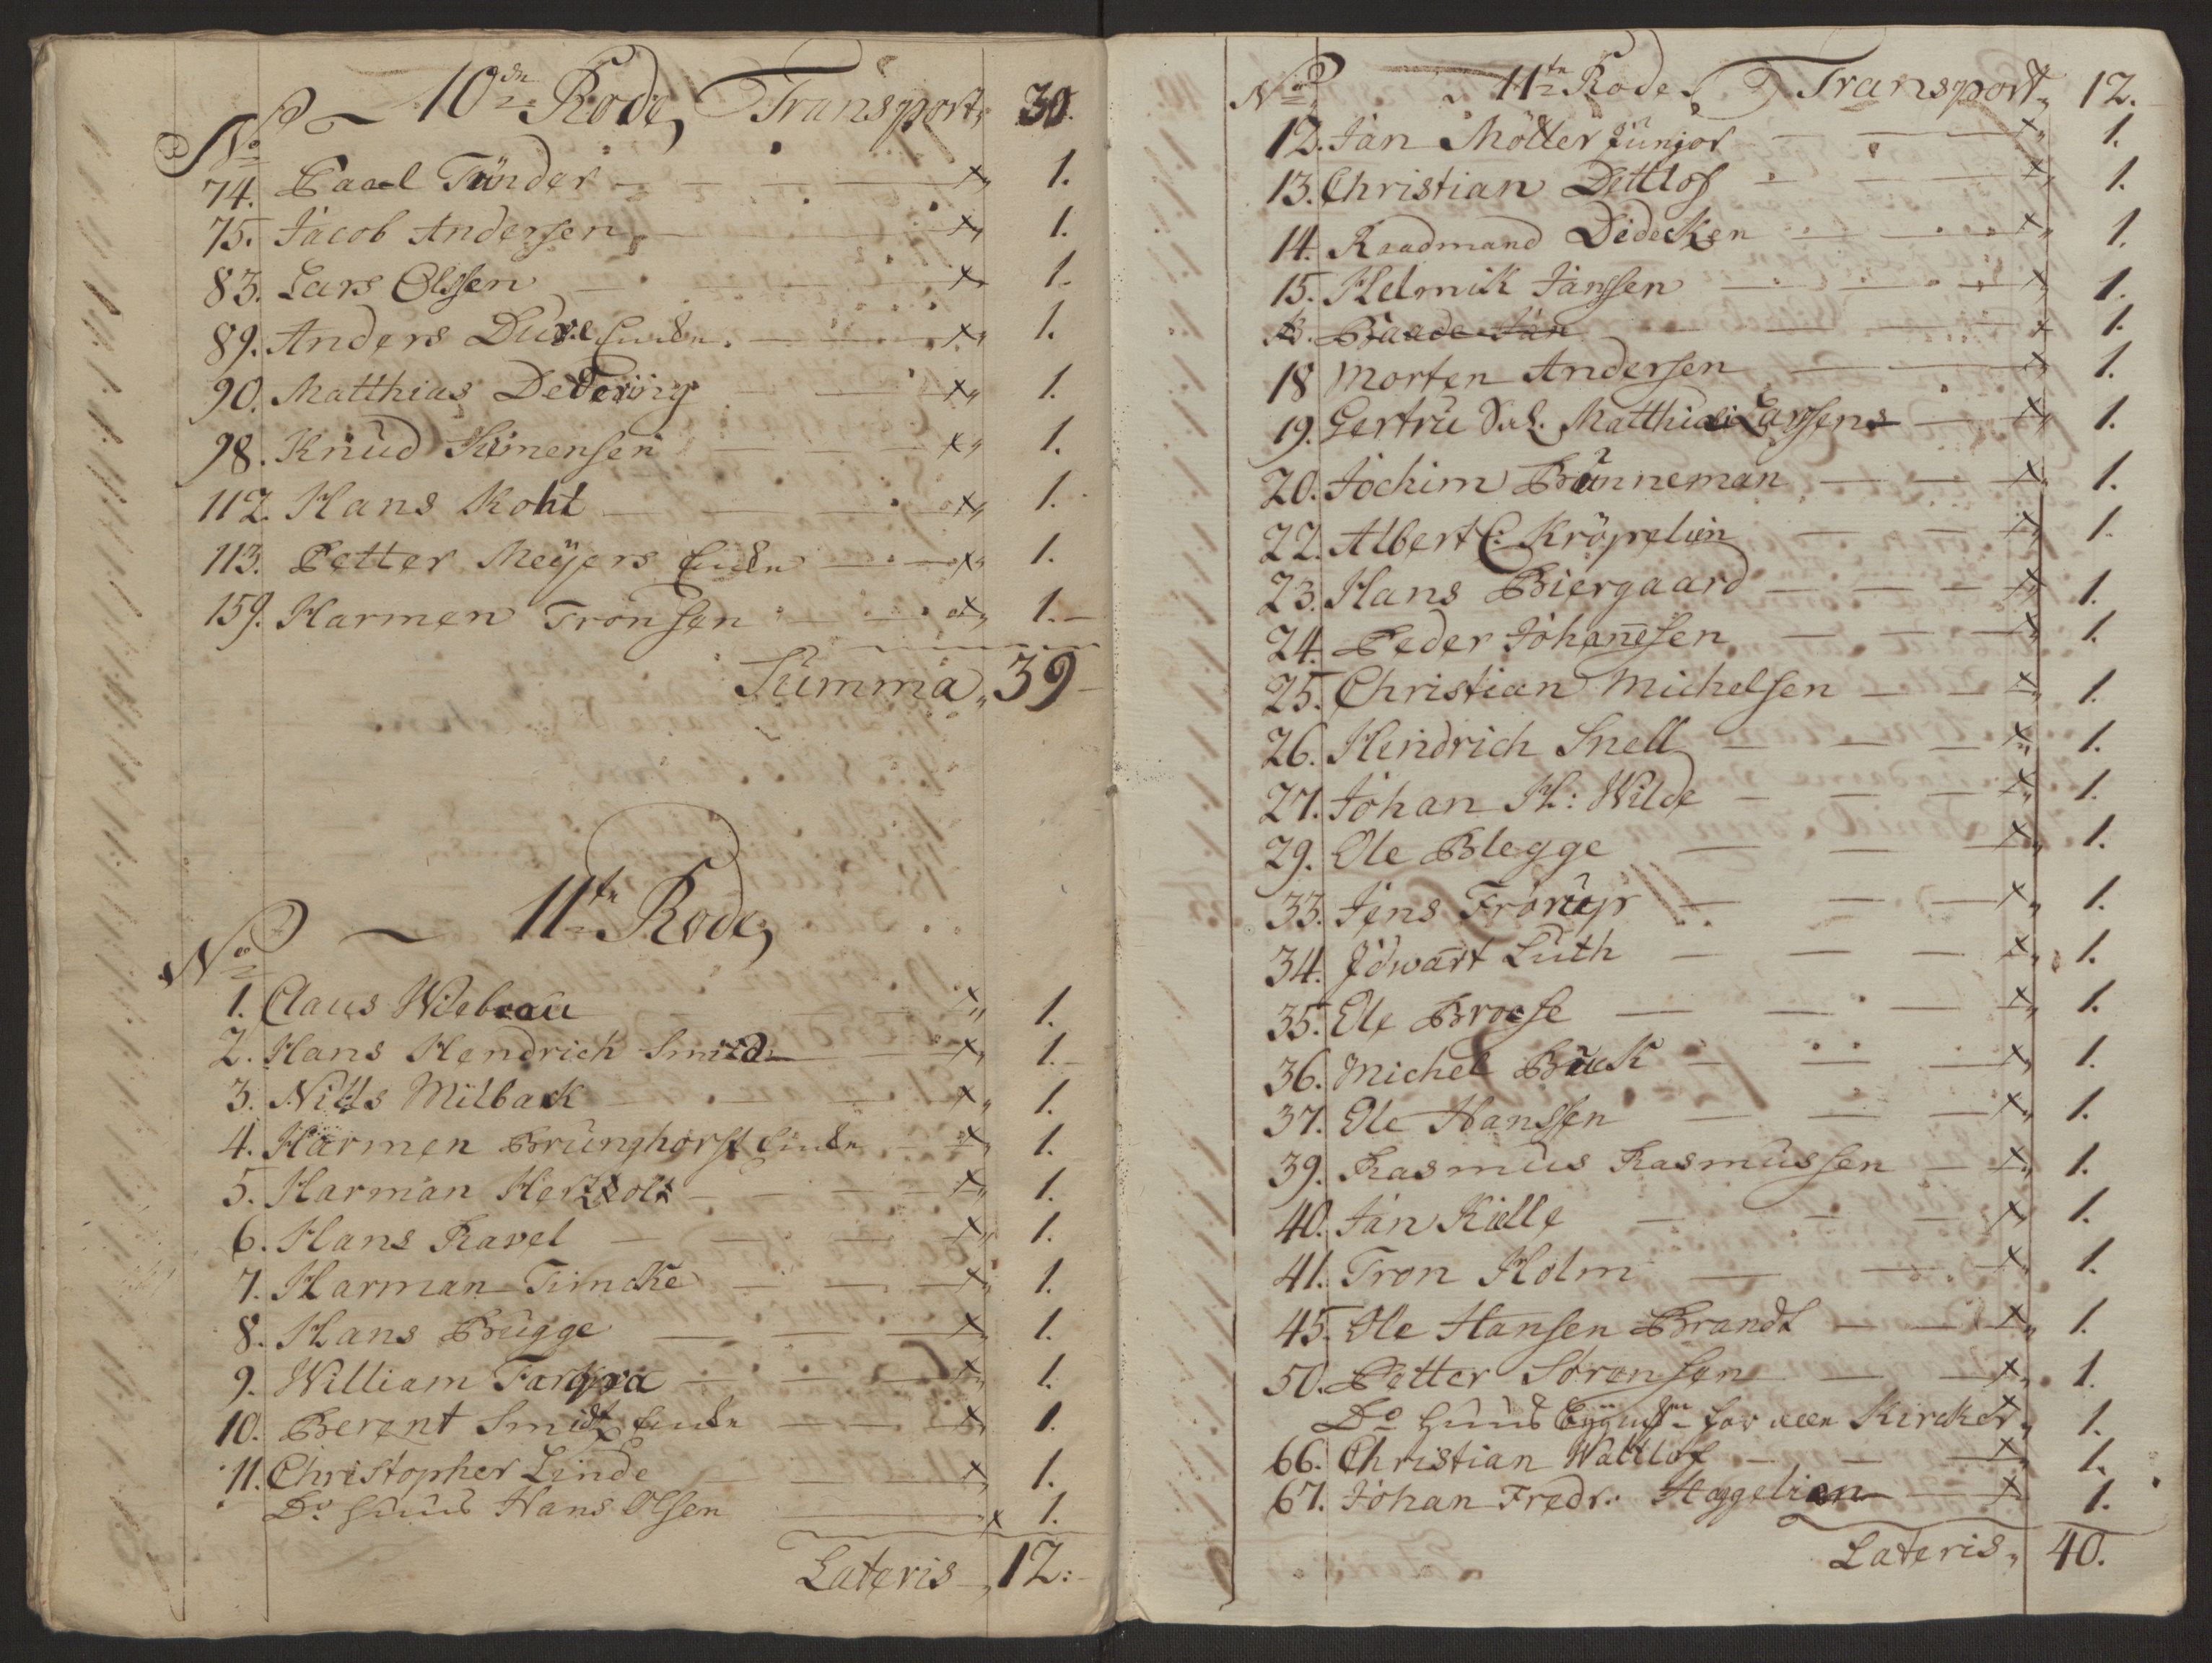 10de Rode, Transport, 30.
No
74. Paael Tünder - - - x, 1.
75. Jacob Andersen, - x, 1.
83. Lars Olssen - x, 1.
89. Anders Duve Enken - x, 1.
90. Matthias Detering - x, 1.
98. Knud Simensen - x, 1.
112. Hans Koht - x, 1.
113. Petter Meÿers Enken - x, 1.
159. Harmen Tronsen x, 1.
Summa, 39
11te Rode,
No
1. Claus Wiebeau x, 1.
2. Hans Hendrich Smidt x, 1.
3. Niels Milbak x, 1.
4. Harmen Brunghorst Enken x, 1.
5. Harman x, 1.
6. Hans Ravel x, 1.
7. Harman Timcke x, 1.
8. Hans Brügge x, 1.
9. William x, 1.
10. Berent Smidt Enken x, 1.
11. Christopher Linde x, 1.
Do Huus Hans Olsen x 1.
Lateris, 12:
No 11te Rode, Transport, 12.
12. Jan Möller Junior x, 1.
13. Christian Dettlof x, 1.
14. Raadmand Didecken x, 1.
15. Helmik Janssen x, 1.
Baade Jan x 1.
18 Morten Andersen x, 1.
19. Gertru Sal. Matthias Larssens x, 1.
20. Jochim Brünneman x, 1.
22. Albert C: Kröpelien x, 1.
23. Hans Biergaard x, 1.
24. Peder Johanesen x, 1.
25. Christian Michelsen x, 1.
26. Hendrich Snell x, 1.
27. Johan H: Wilde x, 1.
29. Ole Blegge x, 1.
33. Jens Frorup x, 1.
34. Jdwart Luth x, 1.
35. Ole Broese x, 1.
36. Michel Buck x, 1.
37. Ole Hanssen x, 1.
39. Rasmus Rasmussen x, 1.
40. Jan Kielle x, 1.
41. Tron Holm x, 1.
45. Ole Hansen Brandt x, 1.
50. Petter Sørensen x, 1.
Do Huus for Kircken x, 1.
66. Christian Waltlof x, 1.
67. Johan Fredr: Haggelien x, 1.
Lateris, 40.